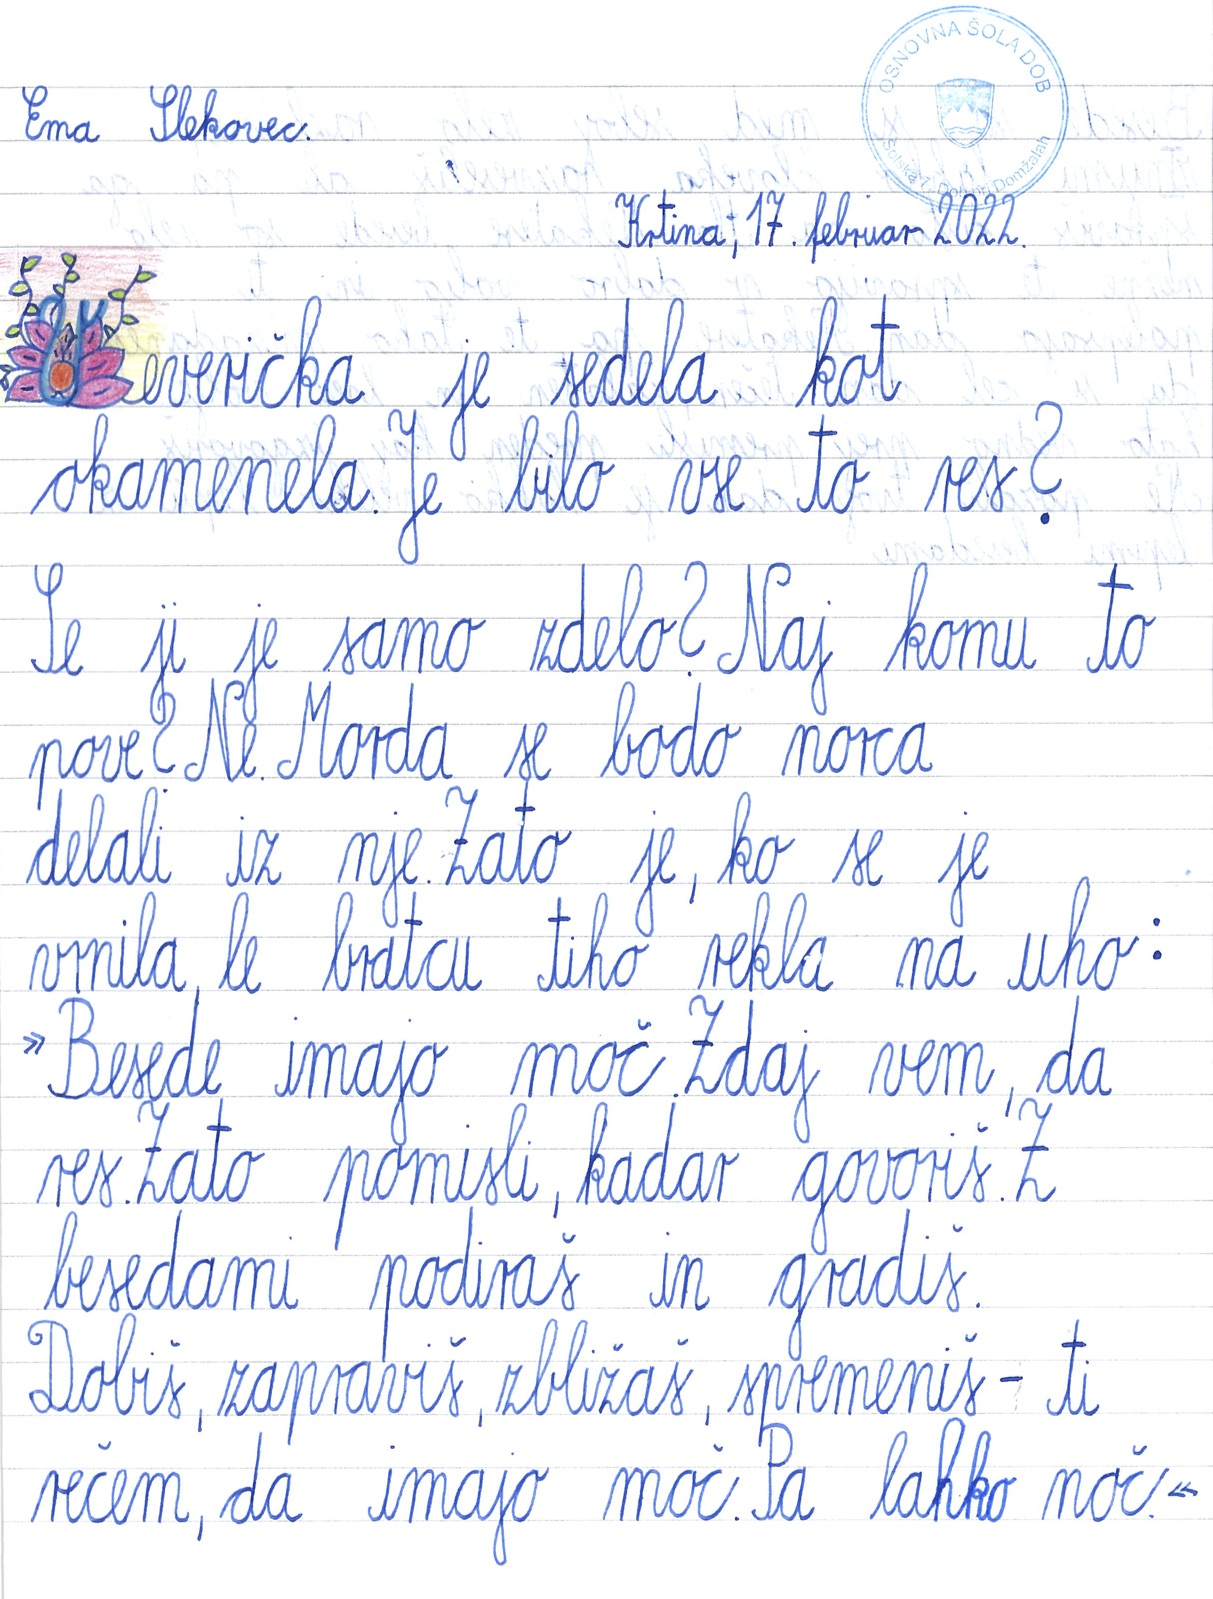 OSNOVNA ŠOLA DOB
Šolska 7, Dob pri Domžalah
Ema Slekovec.
Krtina, 17. februar 2022.
Veverička je sedela kot
okamenela. Je bilo vse to res?
Se ji je samo zdelo? Naj komu to
pove? Ne. Morda se bodo norca
delali iz nje. Zato je, ko se je
vrnila, le bratcu tiho rekla na uho:
»Besede imajo moč. Zdaj vem, da
res. Zato pomisli, kadar govoriš. Z
besedami podiraš in gradiš.
Dobiš, zapraviš, zbližaš, spremeniš - ti
rečem, da imajo moč. Pa lahko noč.«